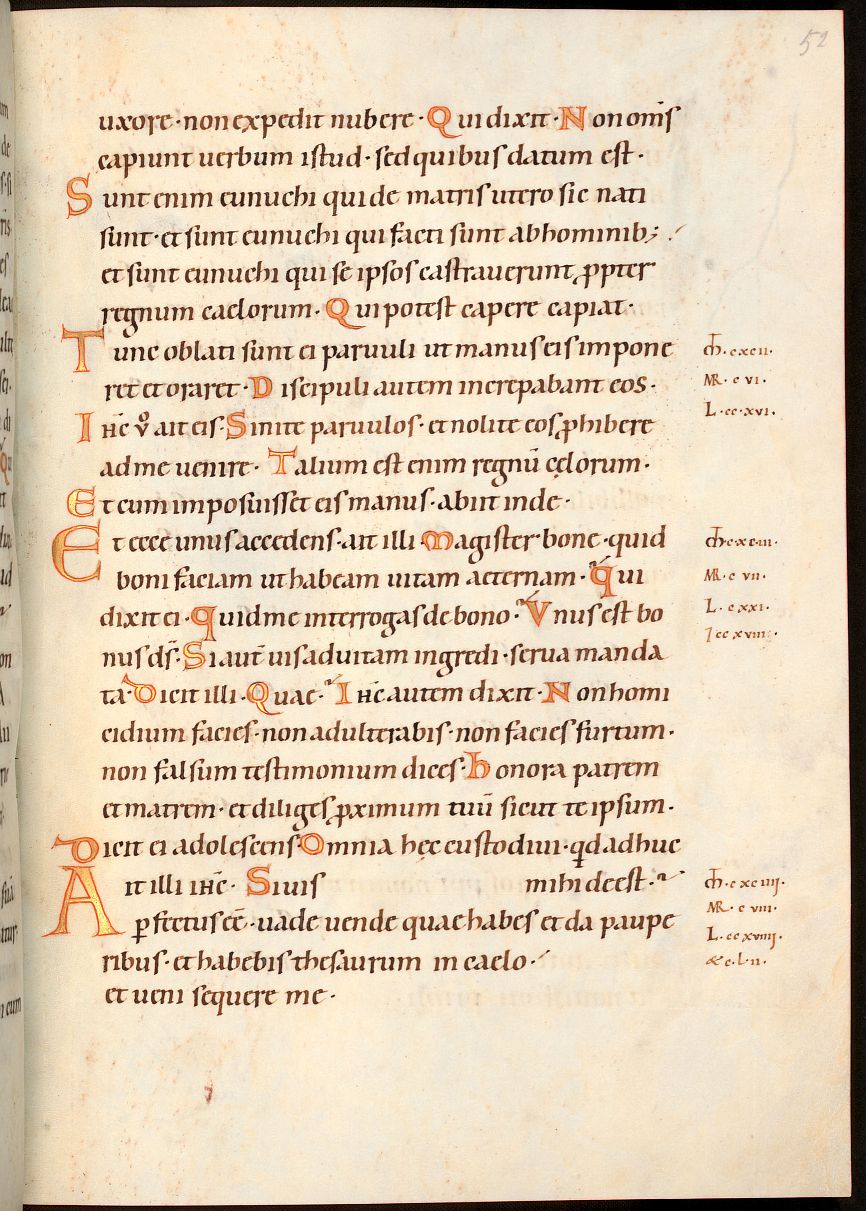 52
uxore · non expedit nubere · Qui dixit · Non om̄s
capiunt uerbum istud · sed quibus datum est ·
Sunt enim eunuchi qui de matris utero sic nati
sunt · et sunt eunuchi qui facti sunt ab hominib;
et sunt eunuchi qui se ipsos castrauerunt ꝓpter
regnum caelorum · Qui potest capere capiat ·
Tunc oblati sunt ei paruuli ut manus eis impone
ret et oraret · Discipuli autem increpabant eos ·
Ihc̄ v̊ ait eis · Sinite paruulos · et nolite eos ꝓhibere
ad me uenire · Talium est enim regnū cęlorum ·
Et cum imposuisset eis manus · abiit inde ·
Et ecce unus accedens · ait illi · Magister bone · quid
boni faciam ut habeam uitam aeternam · Qui
dixit ei · Quid me interrogas de bono · Vnus est bo
nus ds̄ · Si aut̄ uis ad uitam ingredi · serua manda
ta · Dicit illi · Quae · Ihc̄ autem dixit · Non homi
cidium facies · non adulterabis · non facies furtum ·
non falsum testimonium dices · honora patrem
et matrem · et diliges ꝓximum tuū sicut te ipsum ·
Dicit ei adolescens · Omnia hęc custodiui · qd̄ adhuc
Ait illi ihc̄ · Si uis mihi deest ·
ꝑfectus eē · uade uende quae habes et da paupe
ribus · et habebis thesaurum in caelo ·
et ueni sequere me ·
· cxcii ·
MR · c vi ·
L · cc · xvi ·
· c · xc · iii ·
MR · c vii ·
L · c xxi ·
· c xc iiij ·
MR · c viii ·
L · cc xviiij ·